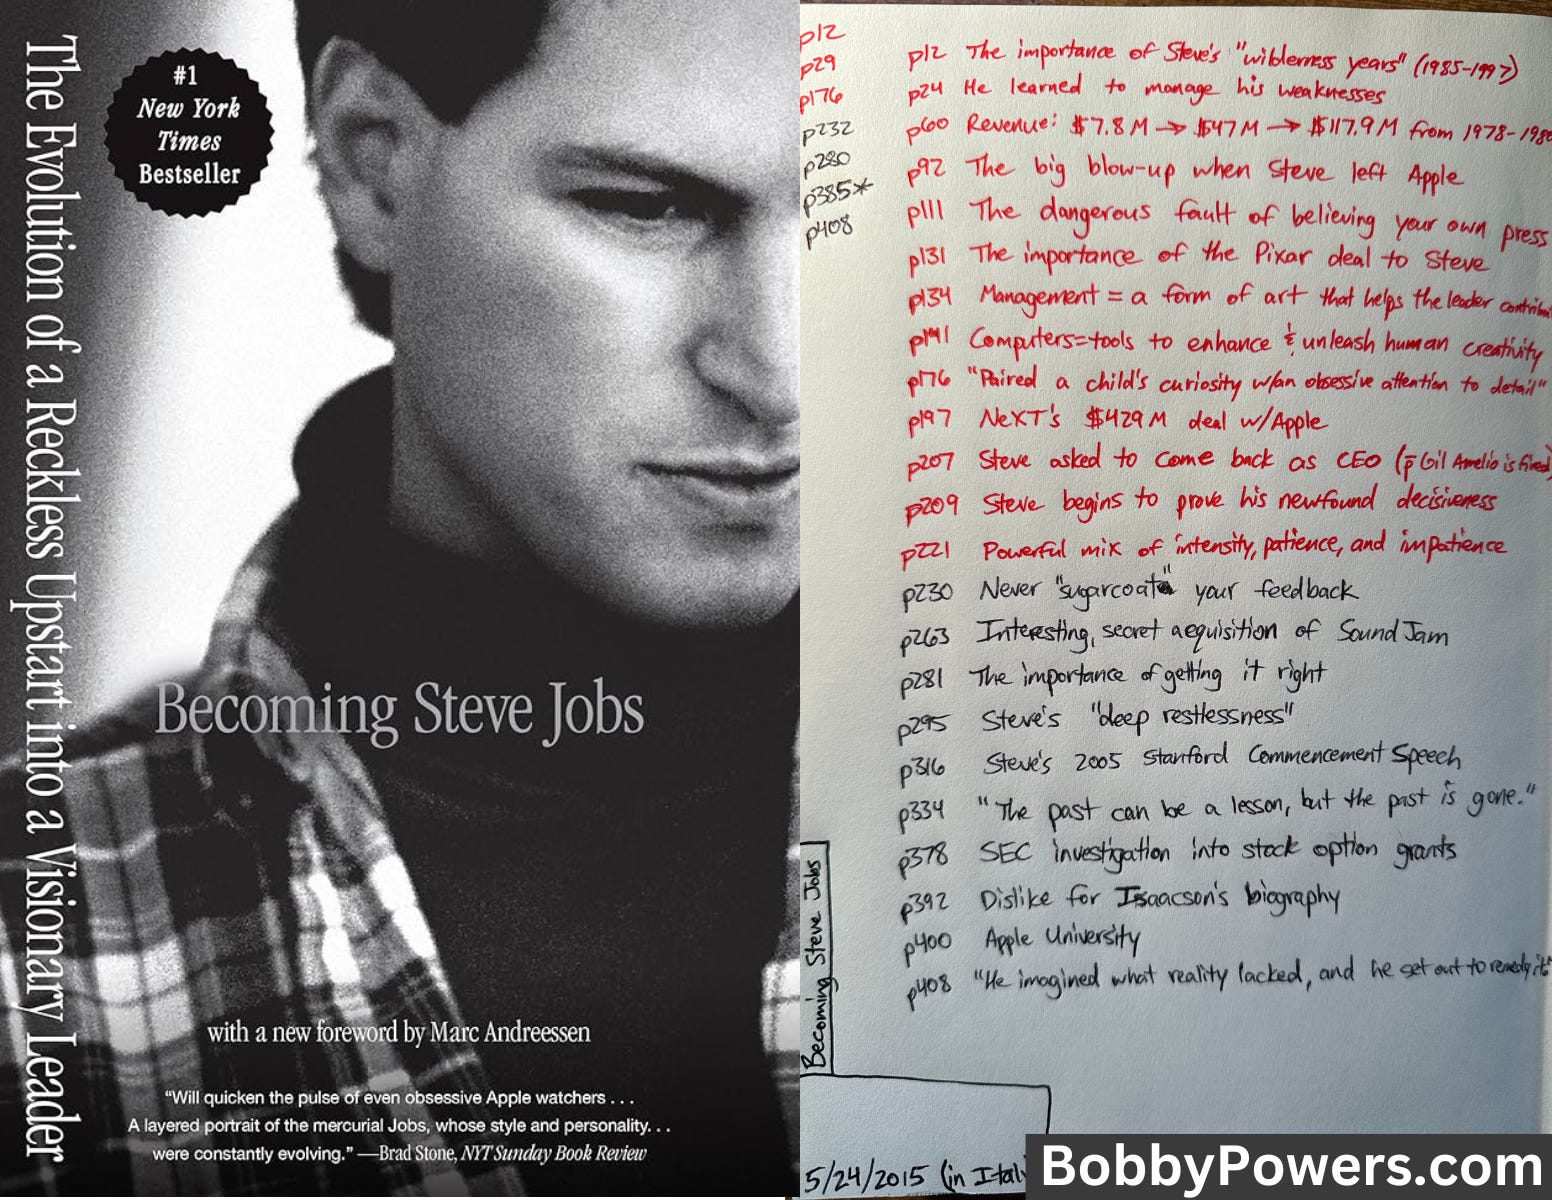 The Evolution of a Reckless Upstart into a Visionary Leader
#1
New York
Times
Bestseller
Becoming Steve Jobs
with a new foreword by Marc Andreessen
“Will quicken the pulse of even obsessive Apple watchers . . .
A layered portrait of the mercurial Jobs, whose style and personality. . .
were constantly evolving.” —Brad Stone, NYT Sunday Book Review
p12
p29
p176
p232
p280
p385*
p408
p12 The importance of Steve's "wilderness years" (1985-1997)
p24 He learned to manage his weaknesses
p60 Revenue: $7.8M → $47M → $117.9M from 1978-1980
p92 The big blow-up when Steve left Apple
p111 The dangerous fault of believing your own press
p131 The importance of the Pixar deal to Steve
p134 Management = a form of art that helps the leader
p141 Computers=tools to enhance & unleash human creativity
p176 "Paired a child's curiosity w/an obsessive attention to detail"
p197 NeXT's $429M deal w/Apple
p207 Steve asked to come back as CEO (p̄ Gil Amelio is fired)
p209 Steve begins to prove his newfound decisiveness
p221 Powerful mix of intensity, patience, and impatience
p230 Never "sugarcoat" your feedback
p263 Interesting, secret acquisition of SoundJam
p281 The importance of getting it right
p295 Steve's "deep restlessness"
p316 Steve's 2005 Stanford Commencement Speech
p334 "The past can be a lesson, but the past is gone."
p378 SEC investigation into stock option grants
p392 Dislike for Isaacson's biography
p400 Apple University
p408 "He imagined what reality lacked, and he set out to remedy it."
Becoming Steve Jobs
5/24/2015 (in Ital
BobbyPowers.com